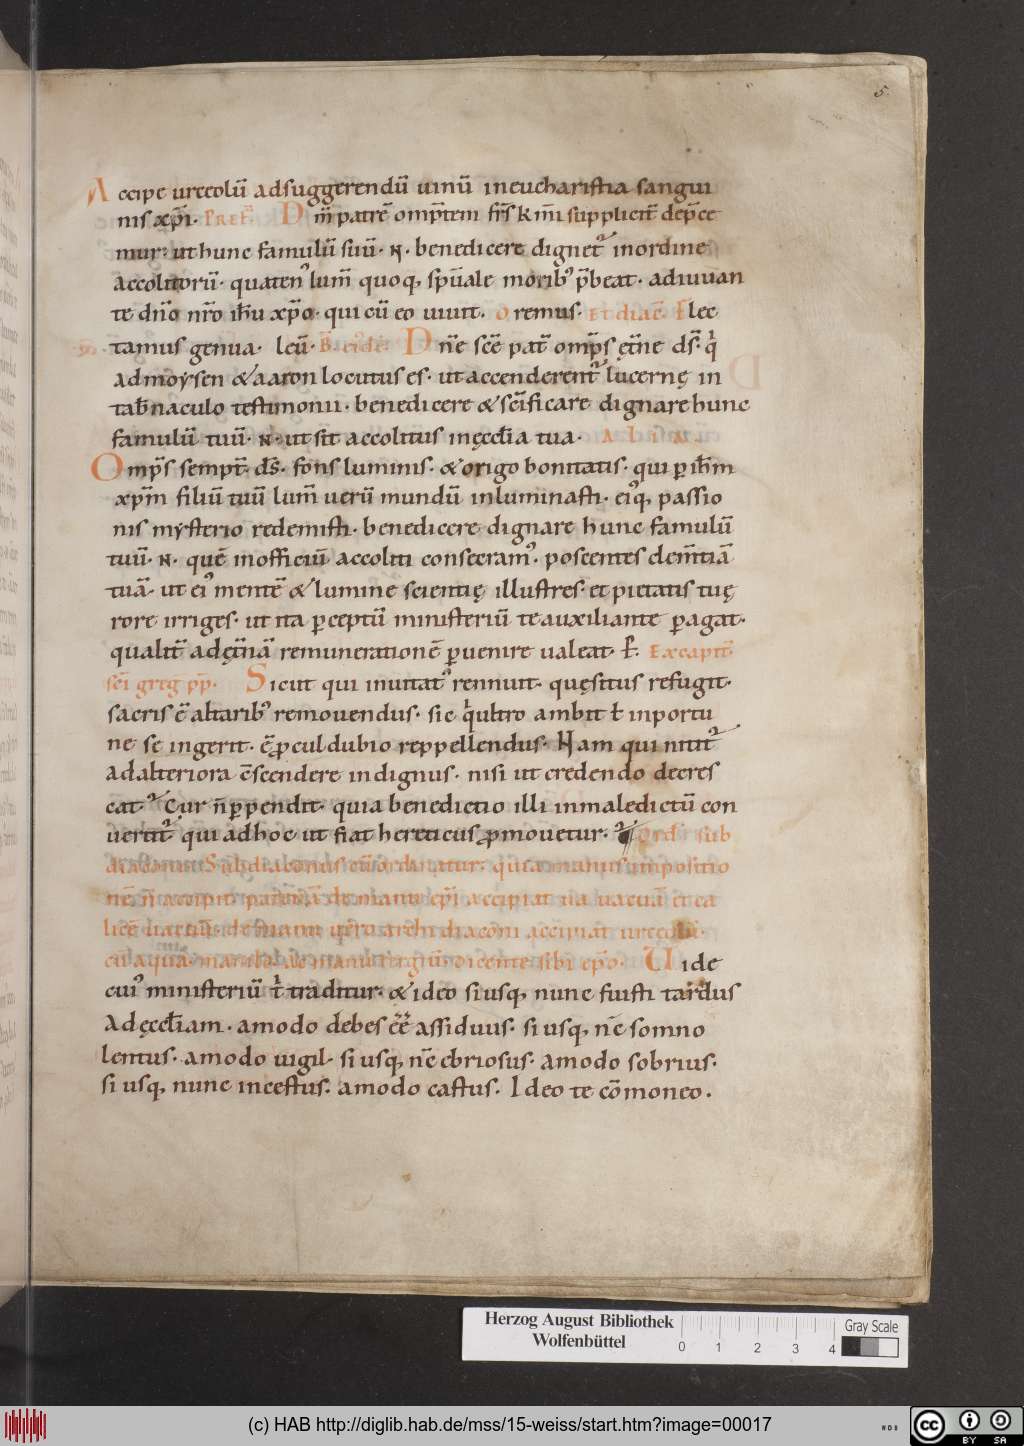 5.
Accipe urceolū adsuggerendū uinū ineucharistia sangui
nis xp̄i. PREF. Dn̄m patrē omp̄tem fr̄s km̄i suppliciт̄ dep̄ce
mur. ut hunc famulū suū. N. benedicere dignet᷑ inordine
accolitorū. quaten᷒ lum̄ quoq, sp̄uale morib᷒ p̄beat. adiuuan
te dn̄o nr̄o ih̄u xp̄o. qui cū eo uiuit. Oremus. Et diac̄. Flec
tamus genua. Leū. Dn̄e sc̄e pat̄ omp̄s ęt̄ne ds̄. qͥ
admoysen & aaron locutus es. ut accenderent᷑ lucernę in
tab̄naculo testimonii. benedicere & sc̄ificare dignare hunc
famulū tuū. N. ut sit accolitus inęccl̄ia tua. ALIA.
Omp̄s semp̄t. ds̄. fons luminis. & origo bonitatis. qui p ih̄m
xp̄m filiū tuū lum̄ uerū mundū inluminasti. eiꝰq, passio
nis mysterio redemisti. benedicere dignare hunc famulū
tuū. N. quē inofficiū accoliti consecramꝰ. poscentes clem̄tiā
tuā. ut eiꝰ mentē & lumine scientię illustres. et pietatis tuę
rore irriges. ut ita pceptū ministeriū te auxiliante pagat.
qualit̄ adęt̄nā remunerationē puenire ualeat. Excapit̄.
sc̄i greg pp̄. Sicut qui inuitatꝰ rennuit. quęsitus refugit.
sacris ē altaribꝰ remouendus. sic qͥ ultro ambit ł inportu
ne se ingerit. ē proculdubio reppellendus. Nam qui nitit᷑
adalteriora c̄scendere indignus. nisi ut credendo decres
cat? Cur n̄ ppendit. quia benedictio illi inmaledictū con
uertit᷑ qui adhoc ut fiat hereticus promouetur. Ord̄ sub
diaconii Subdiaconus cū ordinatur. quia manus impositio
nē n̄ accipit. patenā de manu ep̄i accipiat uacuā et ca
licē uacuū. de manu uero archidiaconi accipiat urceolū.
cū aqua. manile ac manutergiū. dicente sibi ep̄o. Uide
cuiꝰ ministeriū tͥ traditur. & ideo si usq, nunc fuisti tardus
Adęccl̄iam. amodo debes eē assiduus. si usq, nc̄ somno
lentus. amodo uigil. si usq, nc̄ ebriosus. amodo sobrius.
si usq, nunc incestus. amodo castus. Ideo te cōmoneo.
Herzog August Bibliothek
Wolfenbüttel
0 1 2 3 4
Gray Scale
(c) HAB http://diglib.hab.de/mss/15-weiss/start.htm?image=00017
BY SA